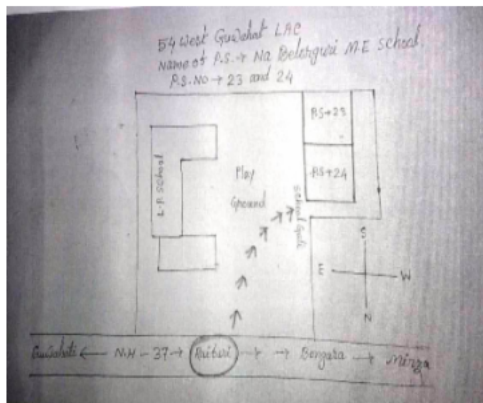 54 West Guwahati LAC
Name of P.S. → Na Belerguri M.E School
P.S. No → 23 and 24
PS→23
PS→24
L.P. School
Play
Ground
School Gate
S
E
W
N
Guwahati ← N.H-37 → → → Bongara → Mirza